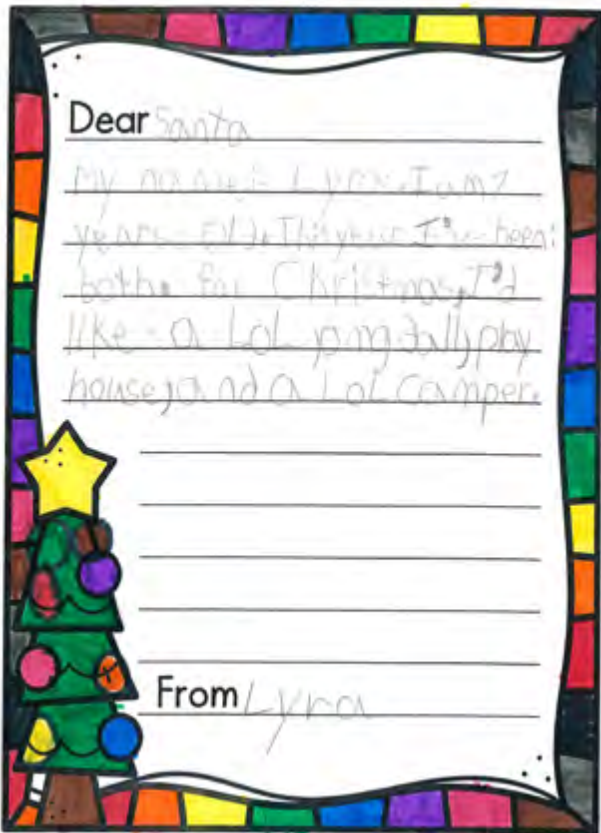 Dear Santa
My name is Lyra. I am 7
years old. This year I've been:
both. for Christmas, I'd
like a LoL omg doll, play
house, and a LoL camper.
From Lyra